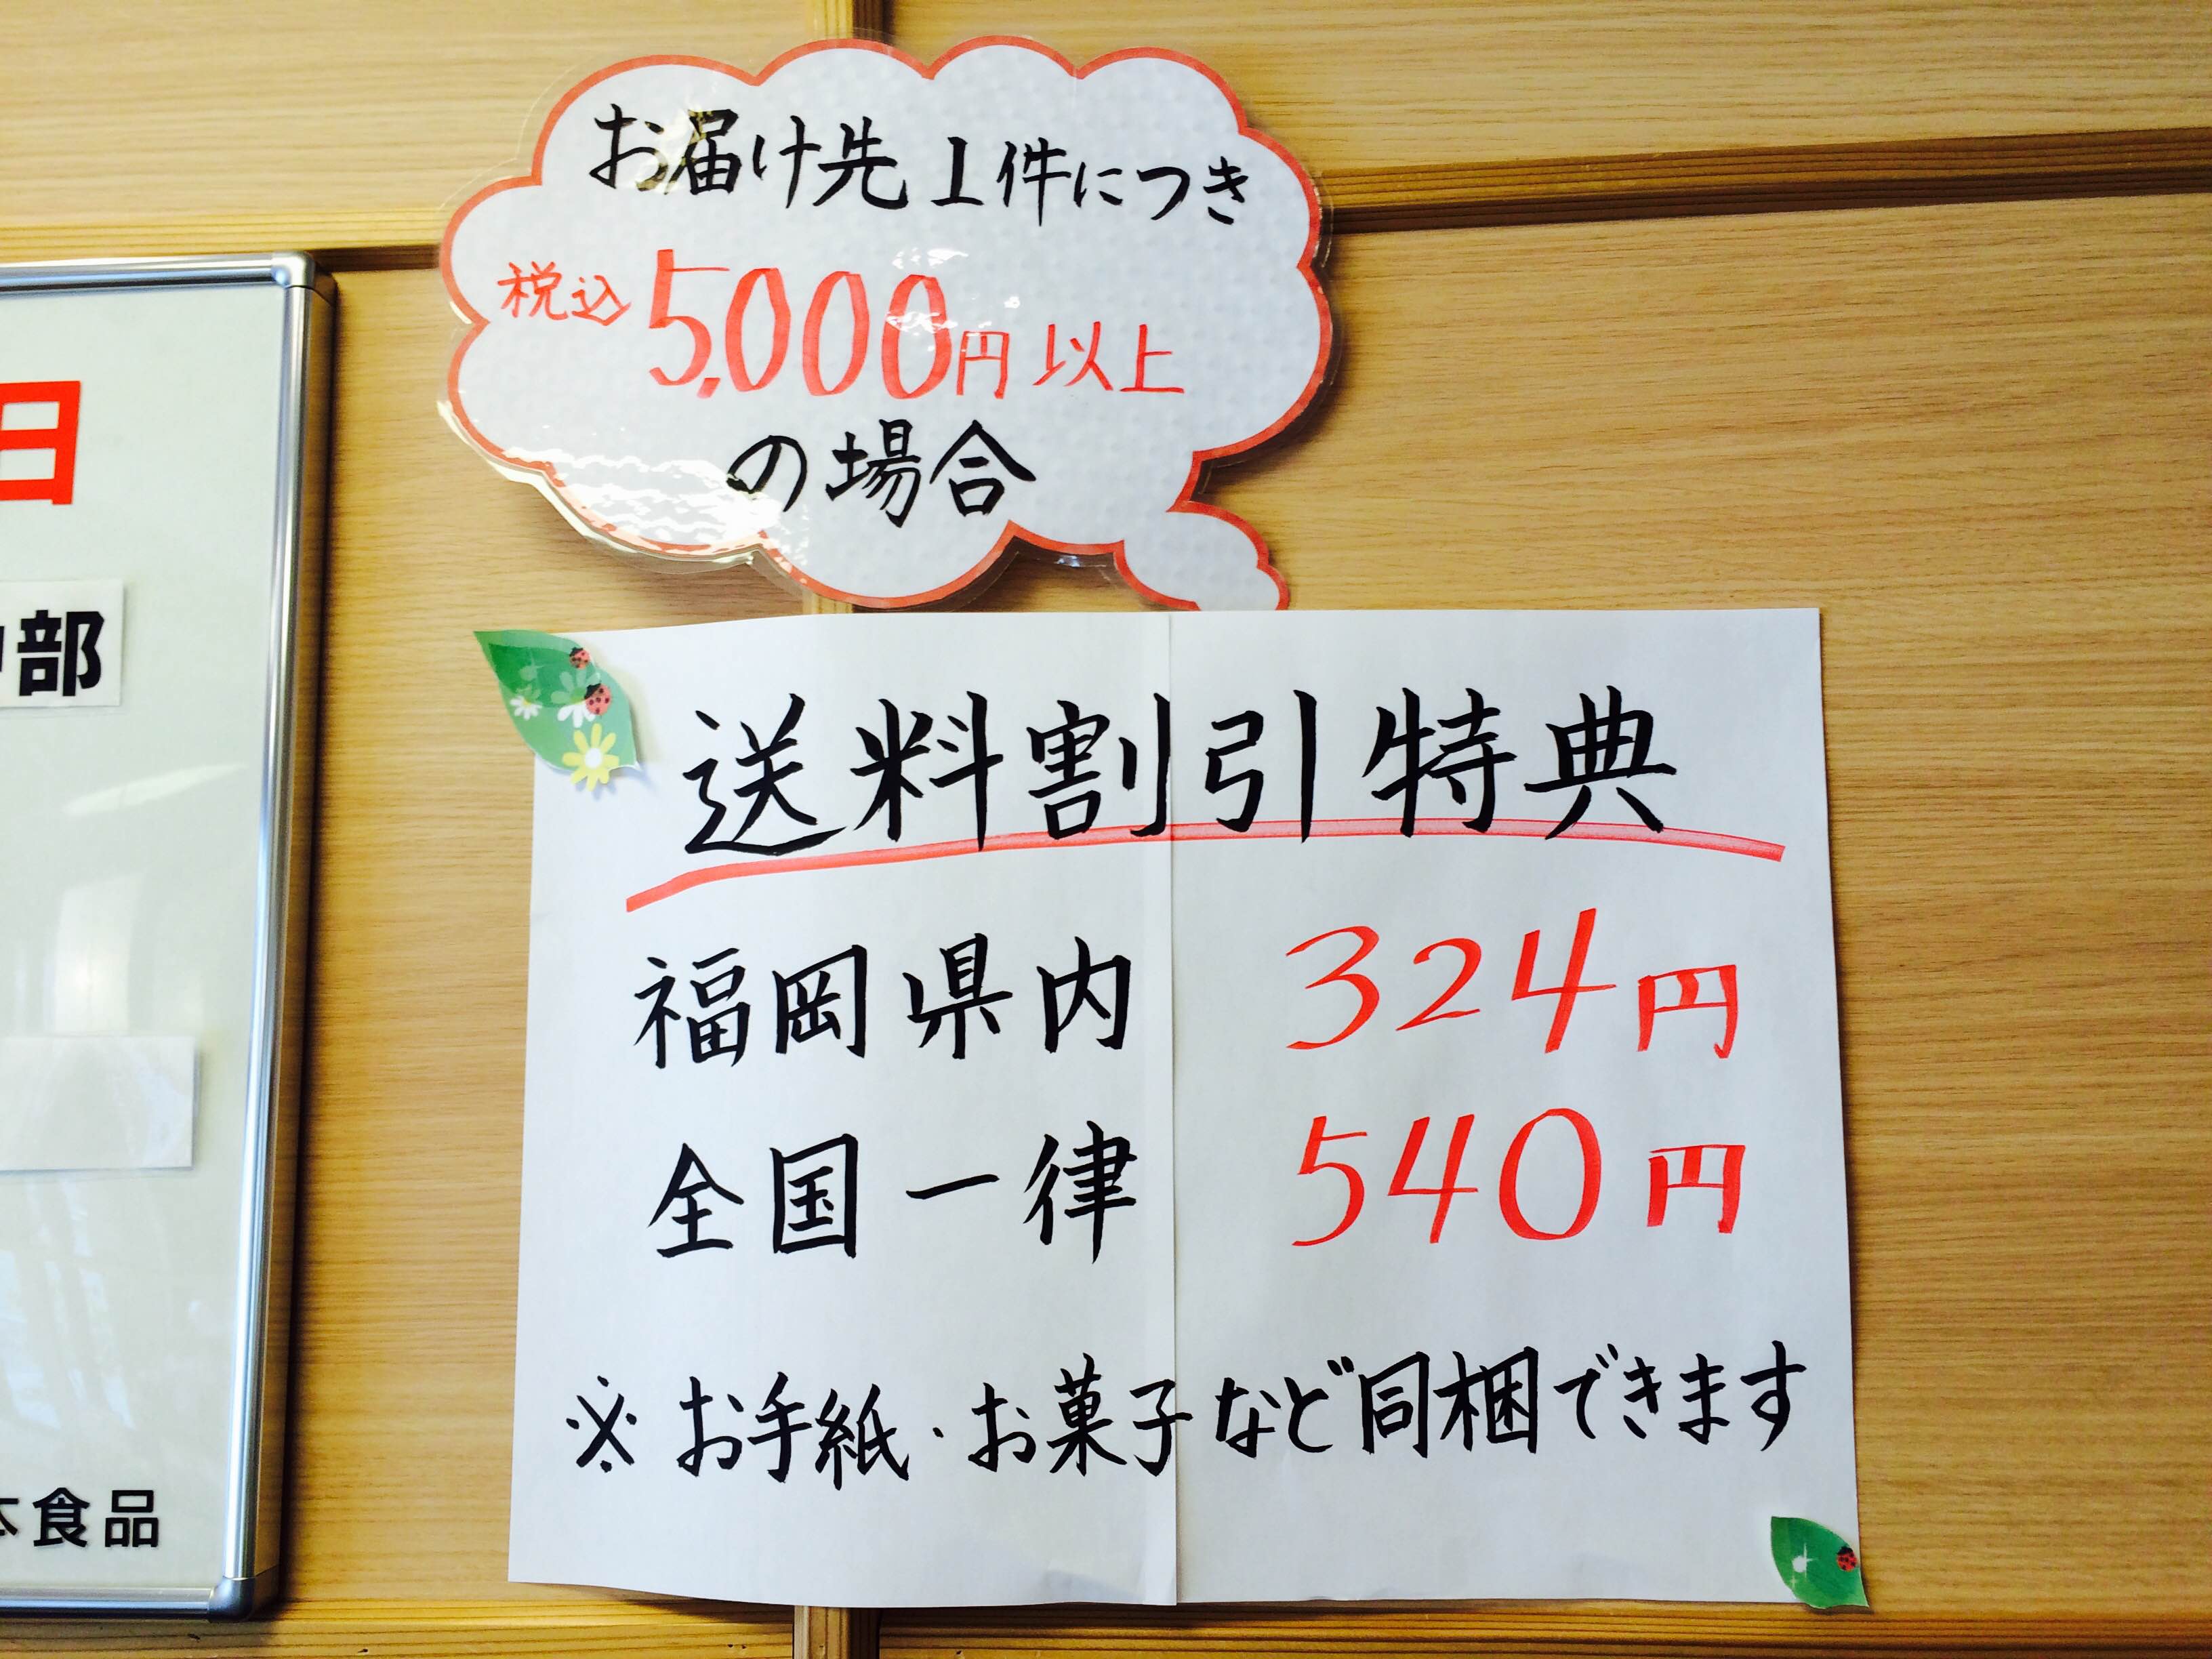 お届け先1件につき
税込5,000円以上
の場合
送料割引特典
福岡県内 324円
全国一律 540円
※お手紙・お菓子など同梱できます
日
部
本食品